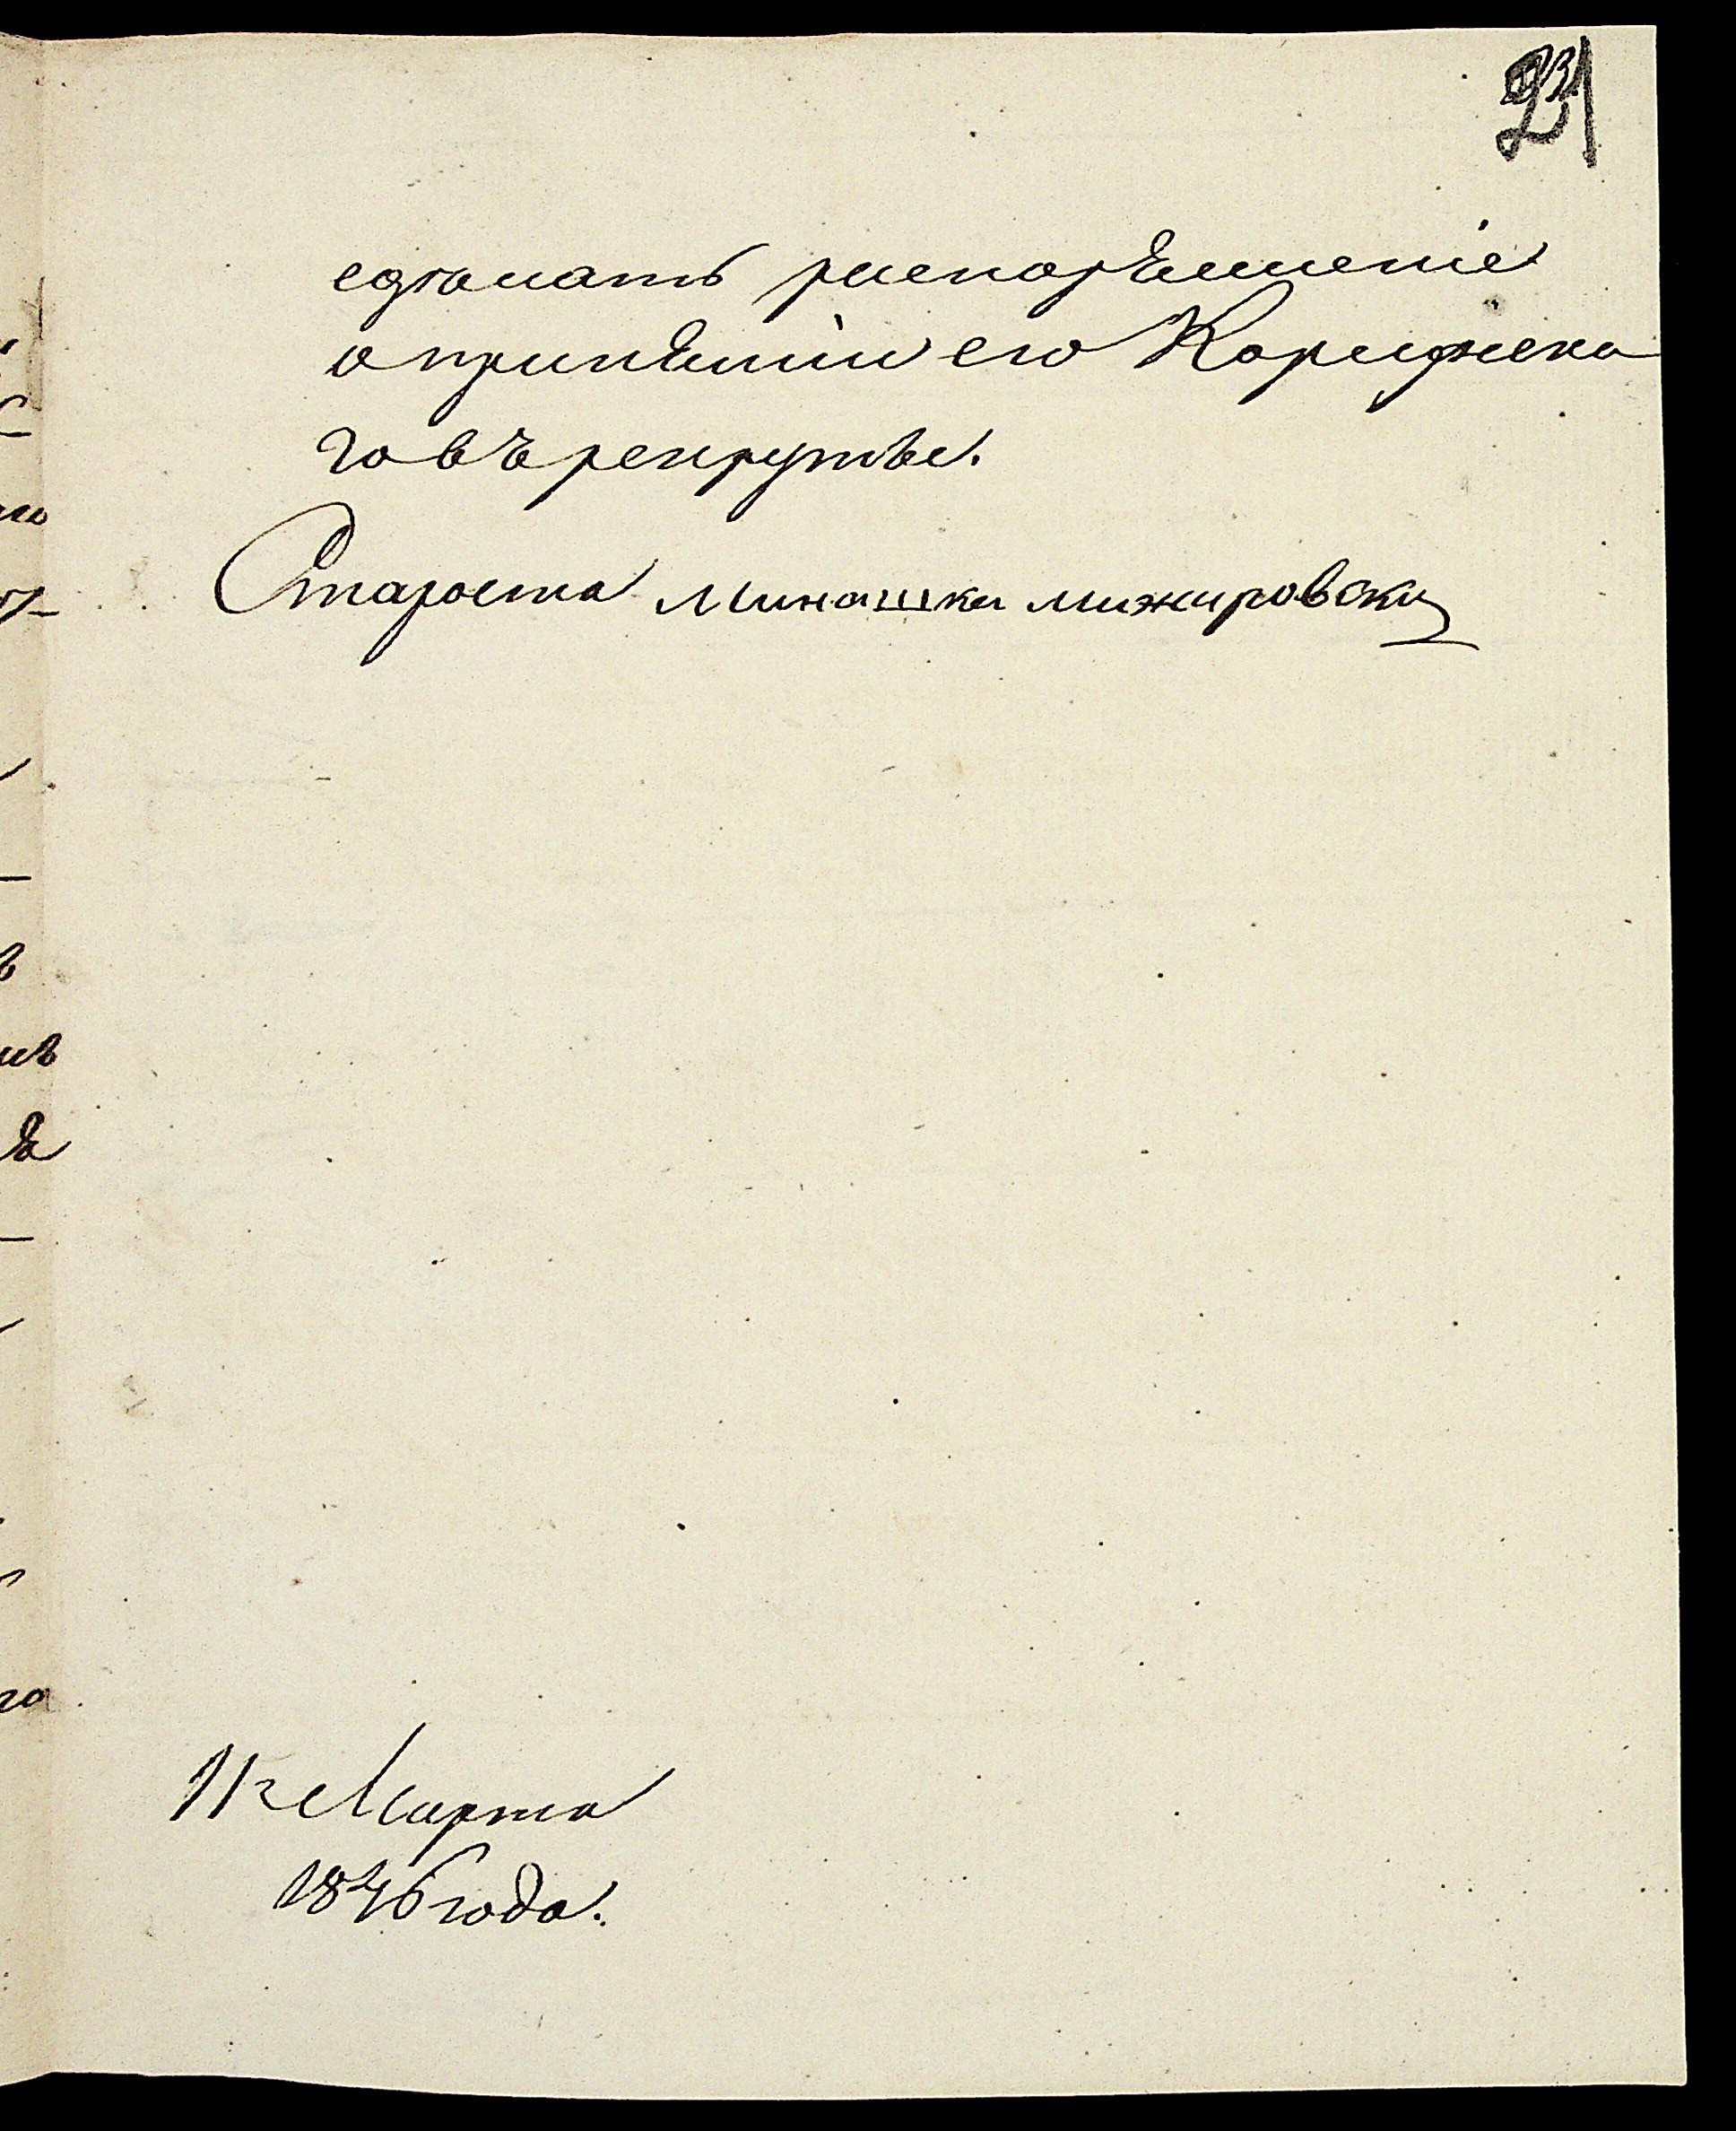 сдѣлать распоряженіе
о принятіи его Кариформ
го въ рекруты.
Староста Минашка мижировски
11 Марта
1846 года.